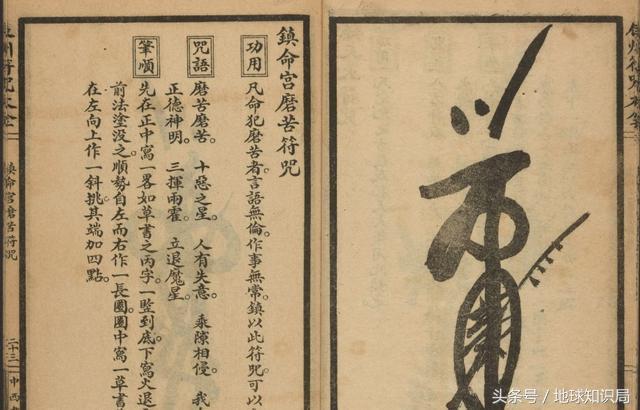 鎮命宮磨苦符咒
功用
凡命犯磨苦者。言語無倫。作事無常。鎮以此符咒可以
咒語
磨苦磨苦。 十惡之星。 人有失意。 乘隙相侵。 我
正德神明。 三揮雨霍。 立退魔星。
筆順
先在正中寫一畧如草書之丙字。一豎到底。下寫火退之
前法塗没之。順勢自左而右作一長圈。圈中寫一草書
在左向上作一斜挑。其端加四點。
鎮命宮磨苦符咒
二十三
中西
头条号 / 地球知识局